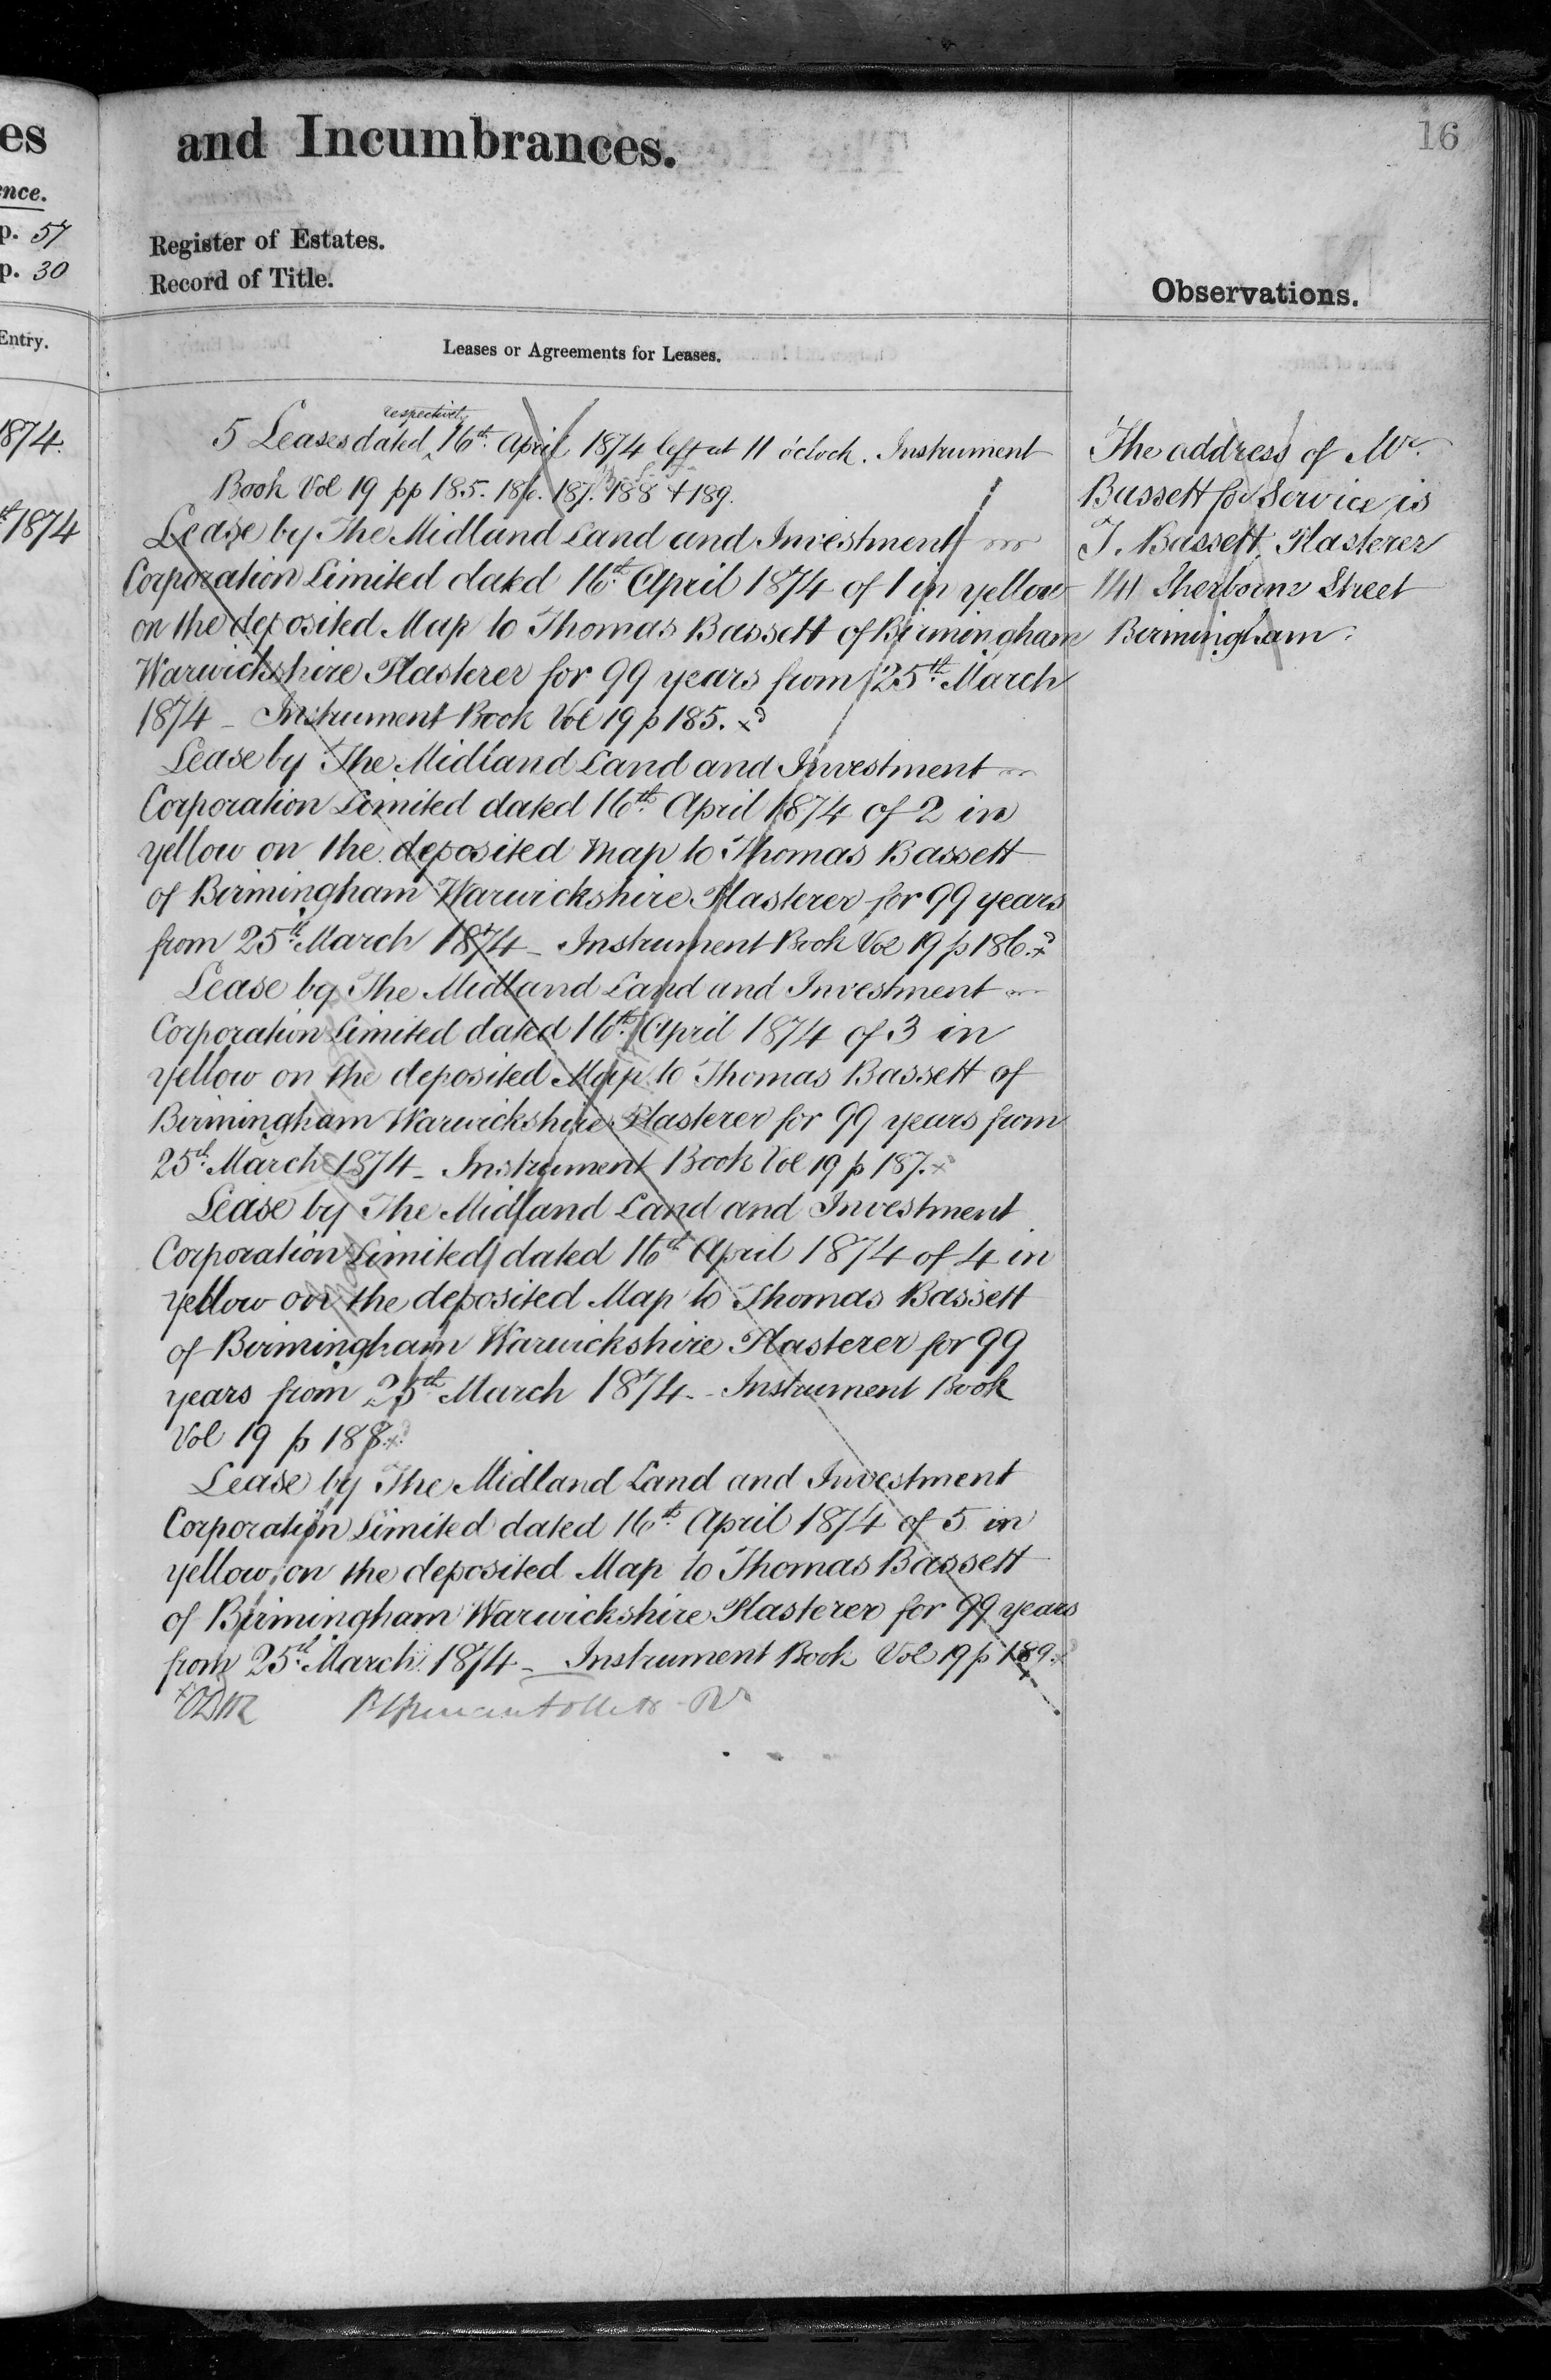 es
nce.
p. 57
p. 30
Entry.
1874.
1874
and Incumbrances.
16
Register of Estates.
Record of Title.
Observations.
Leases or Agreements for Leases.
respectively
5 Leases dated 16th April 1874 left at 11 o'clock. Instrument
Book Vol 19 pp 185. 186. 187. 188 & 189.
Lease by The Midland Land and Investment
Corporation Limited dated 16th April 1874 of 1 in yellow
on the deposited Map to Thomas Bassett of Birmingham
Warwickshire Plasterer for 99 years from 25th March
1874 – Instrument Book Vol 19 p 185. x
Lease by The Midland Land and Investment
Corporation Limited dated 16th April 1874 of 2 in
yellow on the deposited map to Thomas Bassett
of Birmingham Warwickshire Plasterer for 99 years
from 25th March 1874 – Instrument Book Vol 19 p 186. x
Lease by The Midland Land and Investment
Corporation Limited dated 16th April 1874 of 3 in
yellow on the deposited Map to Thomas Bassett of
Birmingham Warwickshire Plasterer for 99 years from
25th March 1874 – Instrument Book Vol 19 p 187. x
Lease by The Midland Land and Investment
Corporation Limited dated 16th April 1874 of 4 in
yellow on the deposited Map to Thomas Bassett
of Birmingham Warwickshire Plasterer for 99
years from 25th March 1874 – Instrument Book
Vol 19 p 188. x
Lease by The Midland Land and Investment
Corporation Limited dated 16th April 1874 of 5 in
yellow on the deposited Map to Thomas Bassett
of Birmingham Warwickshire Plasterer for 99 years
from 25th March 1874 – Instrument Book Vol 19 p 189. x
The address of Mr.
Bassett for Service is
T. Bassett, Plasterer
141 Sherborne Street
Birmingham.